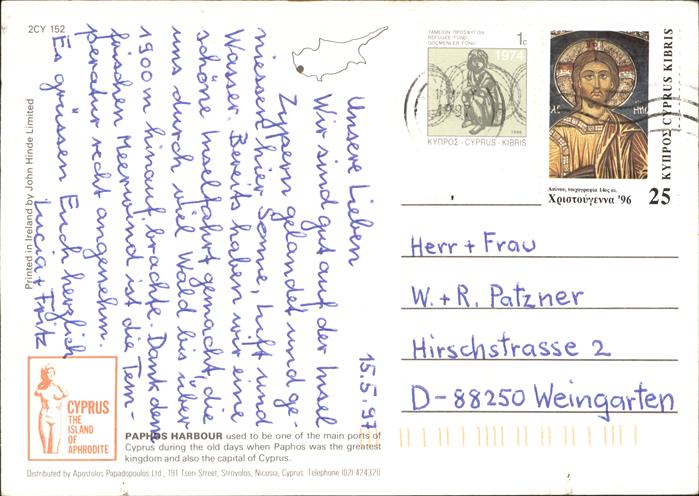 2CY 152
Printed in Ireland by John Hinde Limited
15.5.97
Unsere Lieben
Wir sind gut auf der Insel
Zypern gelandet und ge-
niessen hier Sonne, Luft und
Wasser. Bereits haben wir eine
schöne Inselfahrt gemacht, die
uns durch viel Wald bis über
1900 m hinauf brachte. Dank dem
frischen Meerwind ist die Tem-
peratur recht angenehm.
Es grüssen Euch herzlich
Lucia + Fritz
ΤΑΜΕΙΟΝ ΠΡΟΣΦΥΓΩΝ
REFUGEE FUND
GÖÇMENLER FONU
1c
1974
1996
ΚΥΠΡΟΣ · CYPRUS · KIBRIS
ΚΥΠΡΟΣ CYPRUS KIBRIS
Ασίνου, τοιχογραφία 14ος αι.
Χριστούγεννα '96
25
Herr + Frau
W. + R. Patzner
Hirschstrasse 2
D-88250 Weingarten
CYPRUS
THE
ISLAND
OF
APHRODITE
PAPHOS HARBOUR used to be one of the main ports of
Cyprus during the old days when Paphos was the greatest
kingdom and also the capital of Cyprus.
Distributed by Apostolos Papadopoulos Ltd., 191 Tsen Street, Strovolos, Nicosia, Cyprus. Telephone (02) 424320